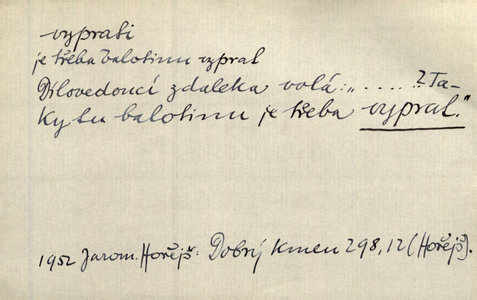 vyprati
je třeba balotinu vyprat
Dílovedoucí zdaleka volá: „..... ? Ta-
ky tu balotinu je třeba vyprat."
1952 Jarom. Hořejš: Dobrý kmen 298, 12 (Hořejš).